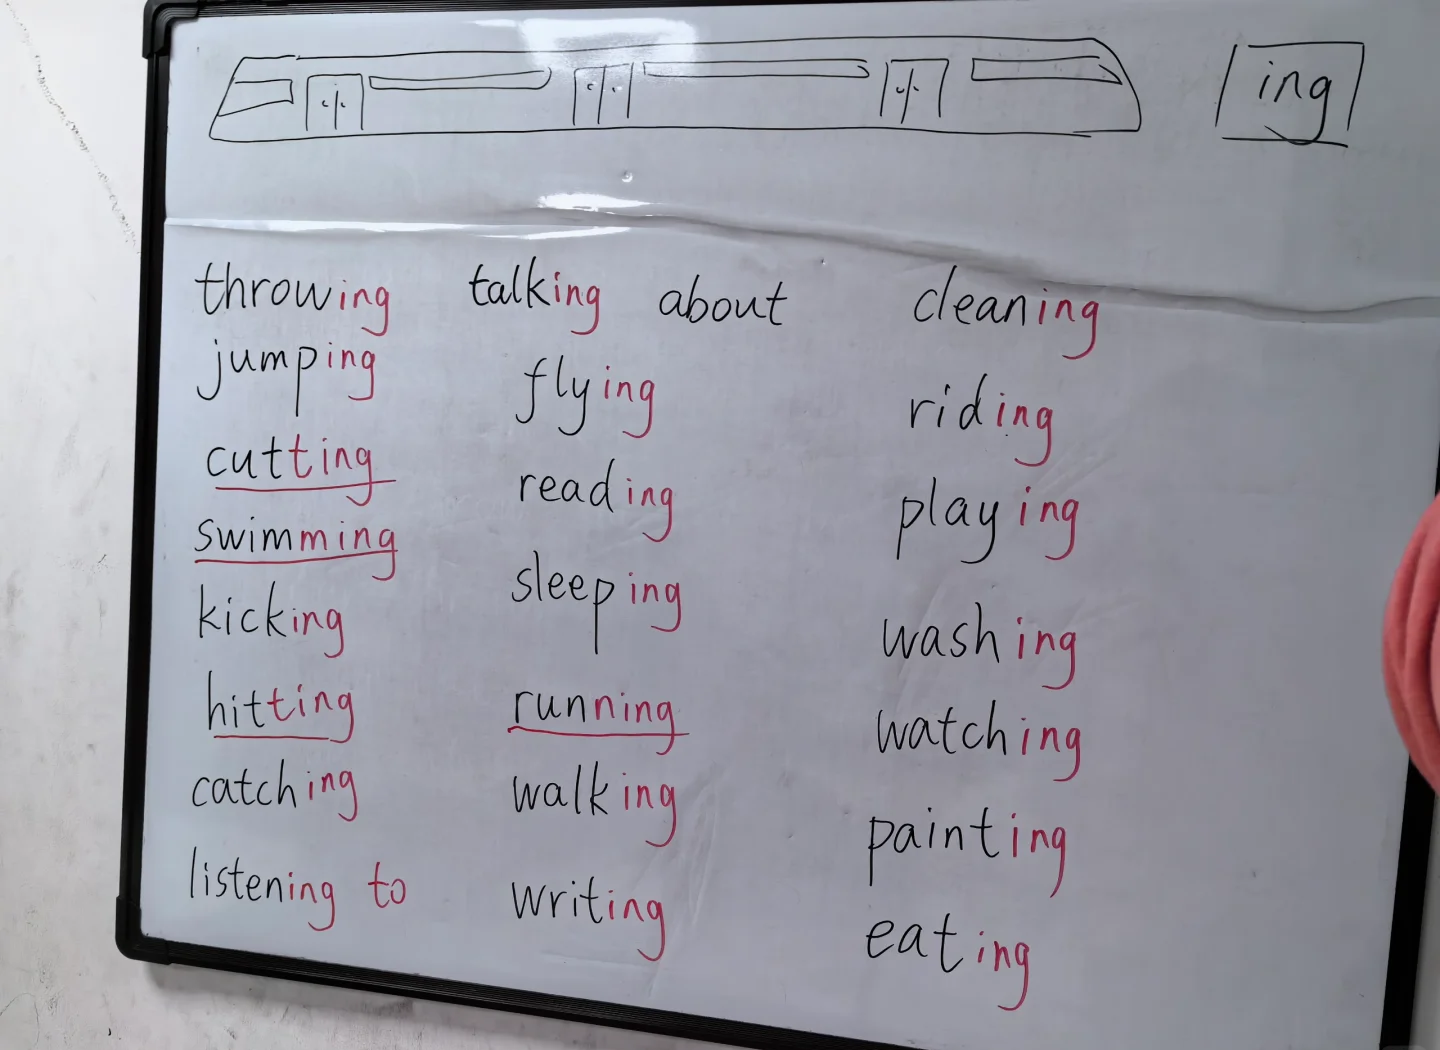 ing
throwing
jumping
cutting
swimming
kicking
hitting
catching
listening to
talking about
flying
reading
sleeping
running
walking
writing
cleaning
riding
playing
washing
watching
painting
eating